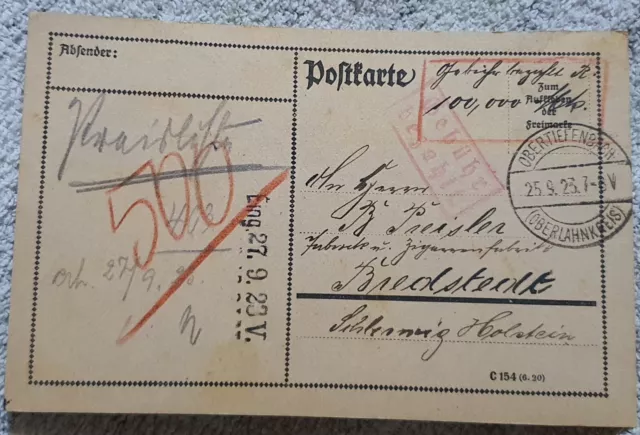 Absender:
Postkarte
Gebühr bezahlt
100,000 Mk.
Zum
Aufkleben
der
Freimarke
Gebühr
bezahlt
OBERTIEFENBACH
25.9.23.7-8V
(OBERLAHNKREIS)
Preisliste
500
27/9. 23
Eing. 27. 9. 23 V.
An Herrn
B. Preisler
Tabak u. Zigarrenfabrik
Bredstedt
Schleswig Holstein
C 154 (6. 20)